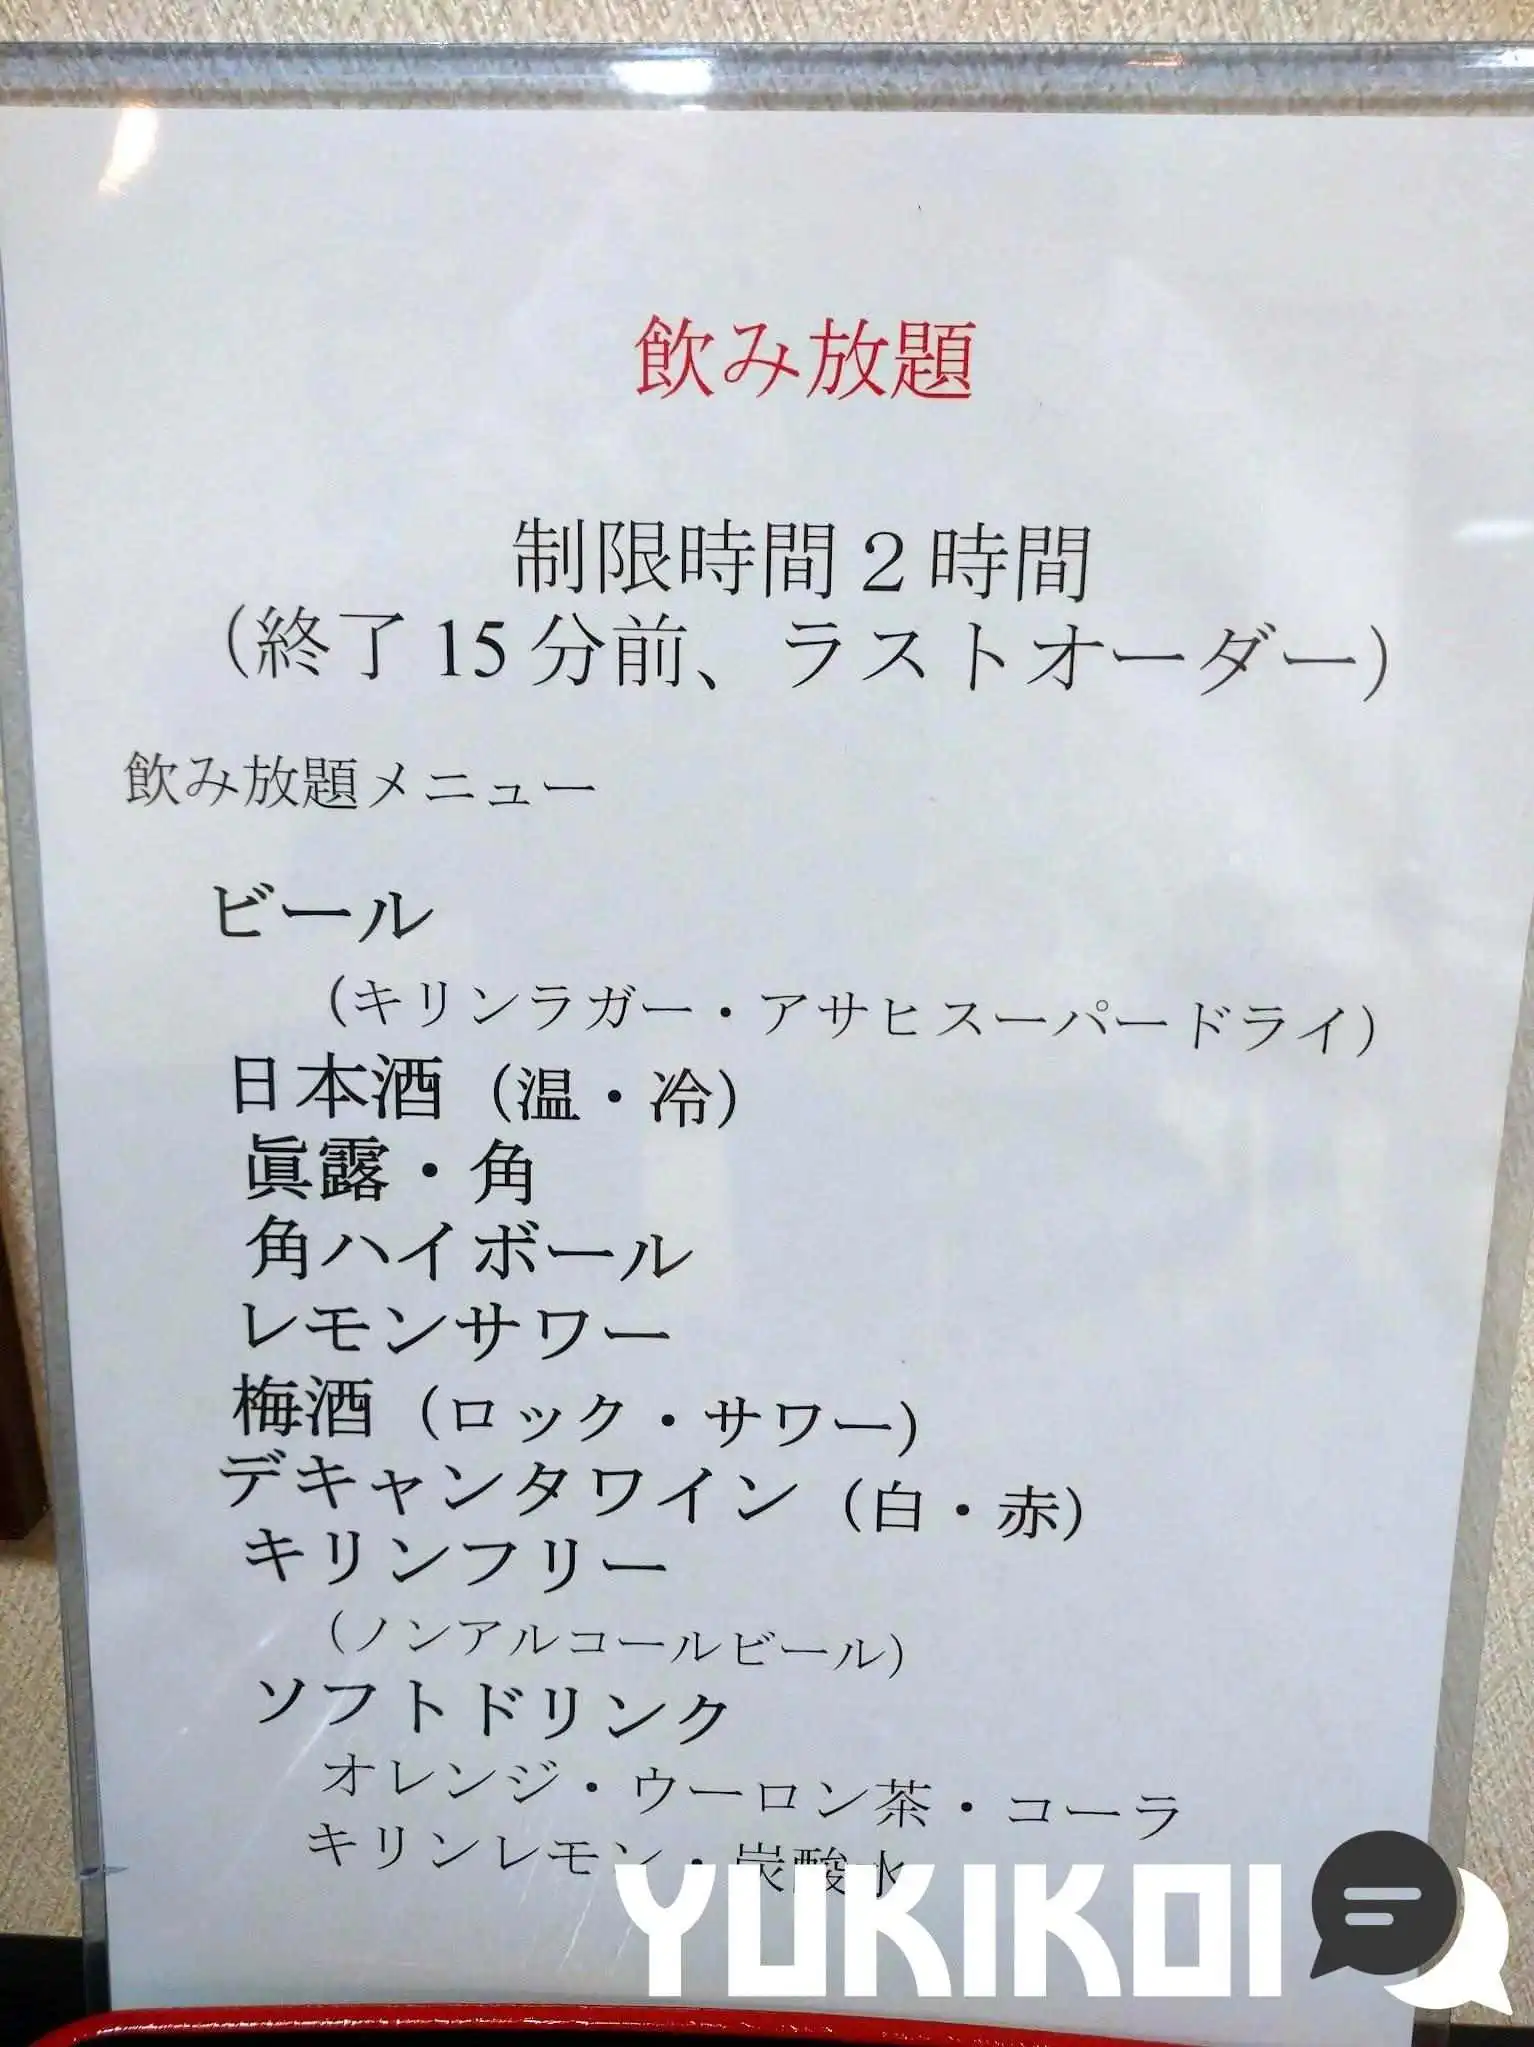 飲み放題
制限時間２時間
（終了 15 分前、ラストオーダー）
飲み放題メニュー
ビール
（キリンラガー・アサヒスーパードライ）
日本酒（温・冷）
眞露・角
角ハイボール
レモンサワー
梅酒（ロック・サワー）
デキャンタワイン（白・赤）
キリンフリー
（ノンアルコールビール）
ソフトドリンク
オレンジ・ウーロン茶・コーラ
キリンレモン・炭酸水
YUKIKOI